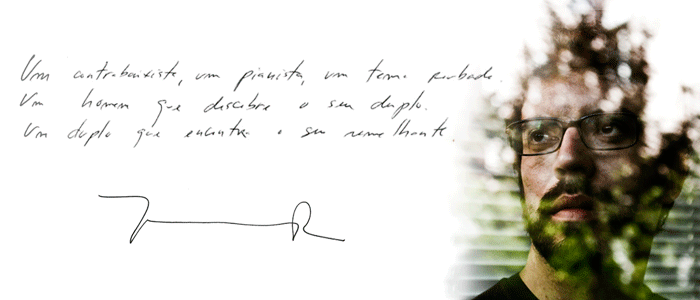 Um contrabaixista, um pianista, um tema roubado.
Um homem que descobre o seu duplo.
Um duplo que encontra o seu semelhante.